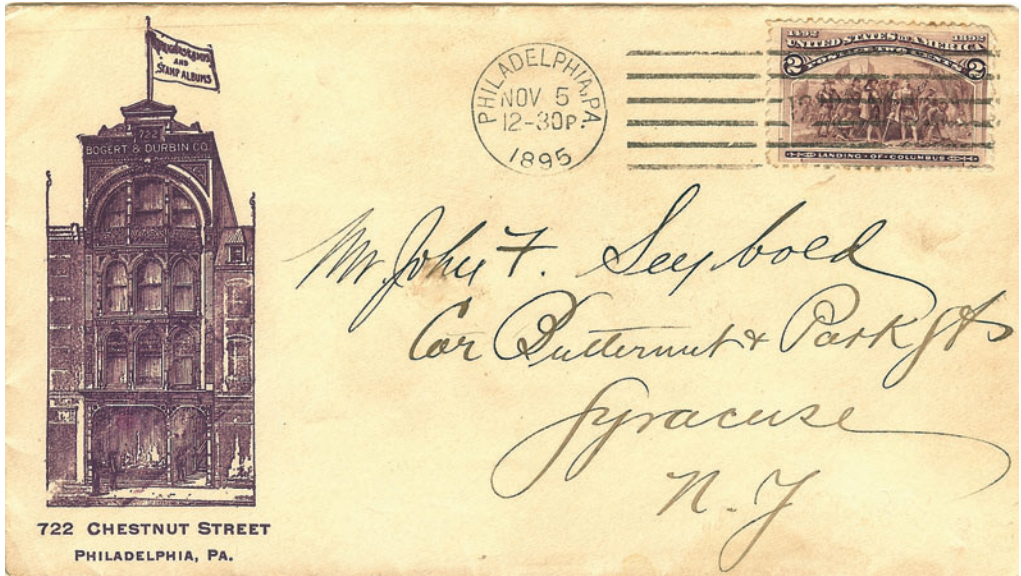 AND
STAMP ALBUMS
722
BOGERT & DURBIN CO.
722 CHESTNUT STREET
PHILADELPHIA, PA.
PHILADELPHIA, PA.
NOV 5
12-30P.
1895
1492 1892
UNITED STATES OF AMERICA
POSTAGE TWO CENTS
2 2
LANDING · OF · COLUMBUS
Mr John F. Seybold
Cor Butternut & Park Sts
Syracuse
N. Y